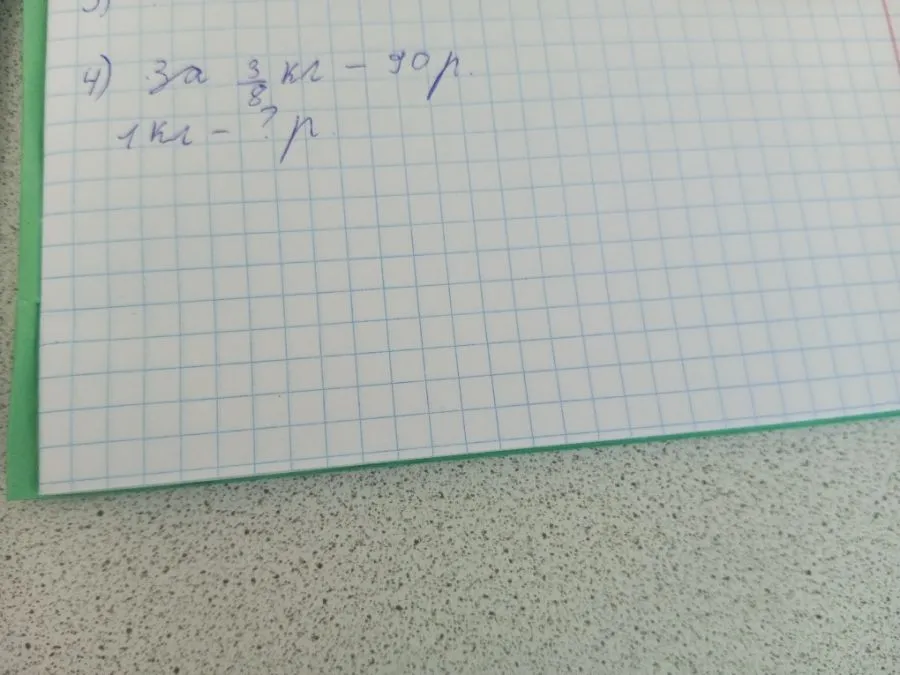 4) За 3/8 кг – 90 р.
1 кг – ? р